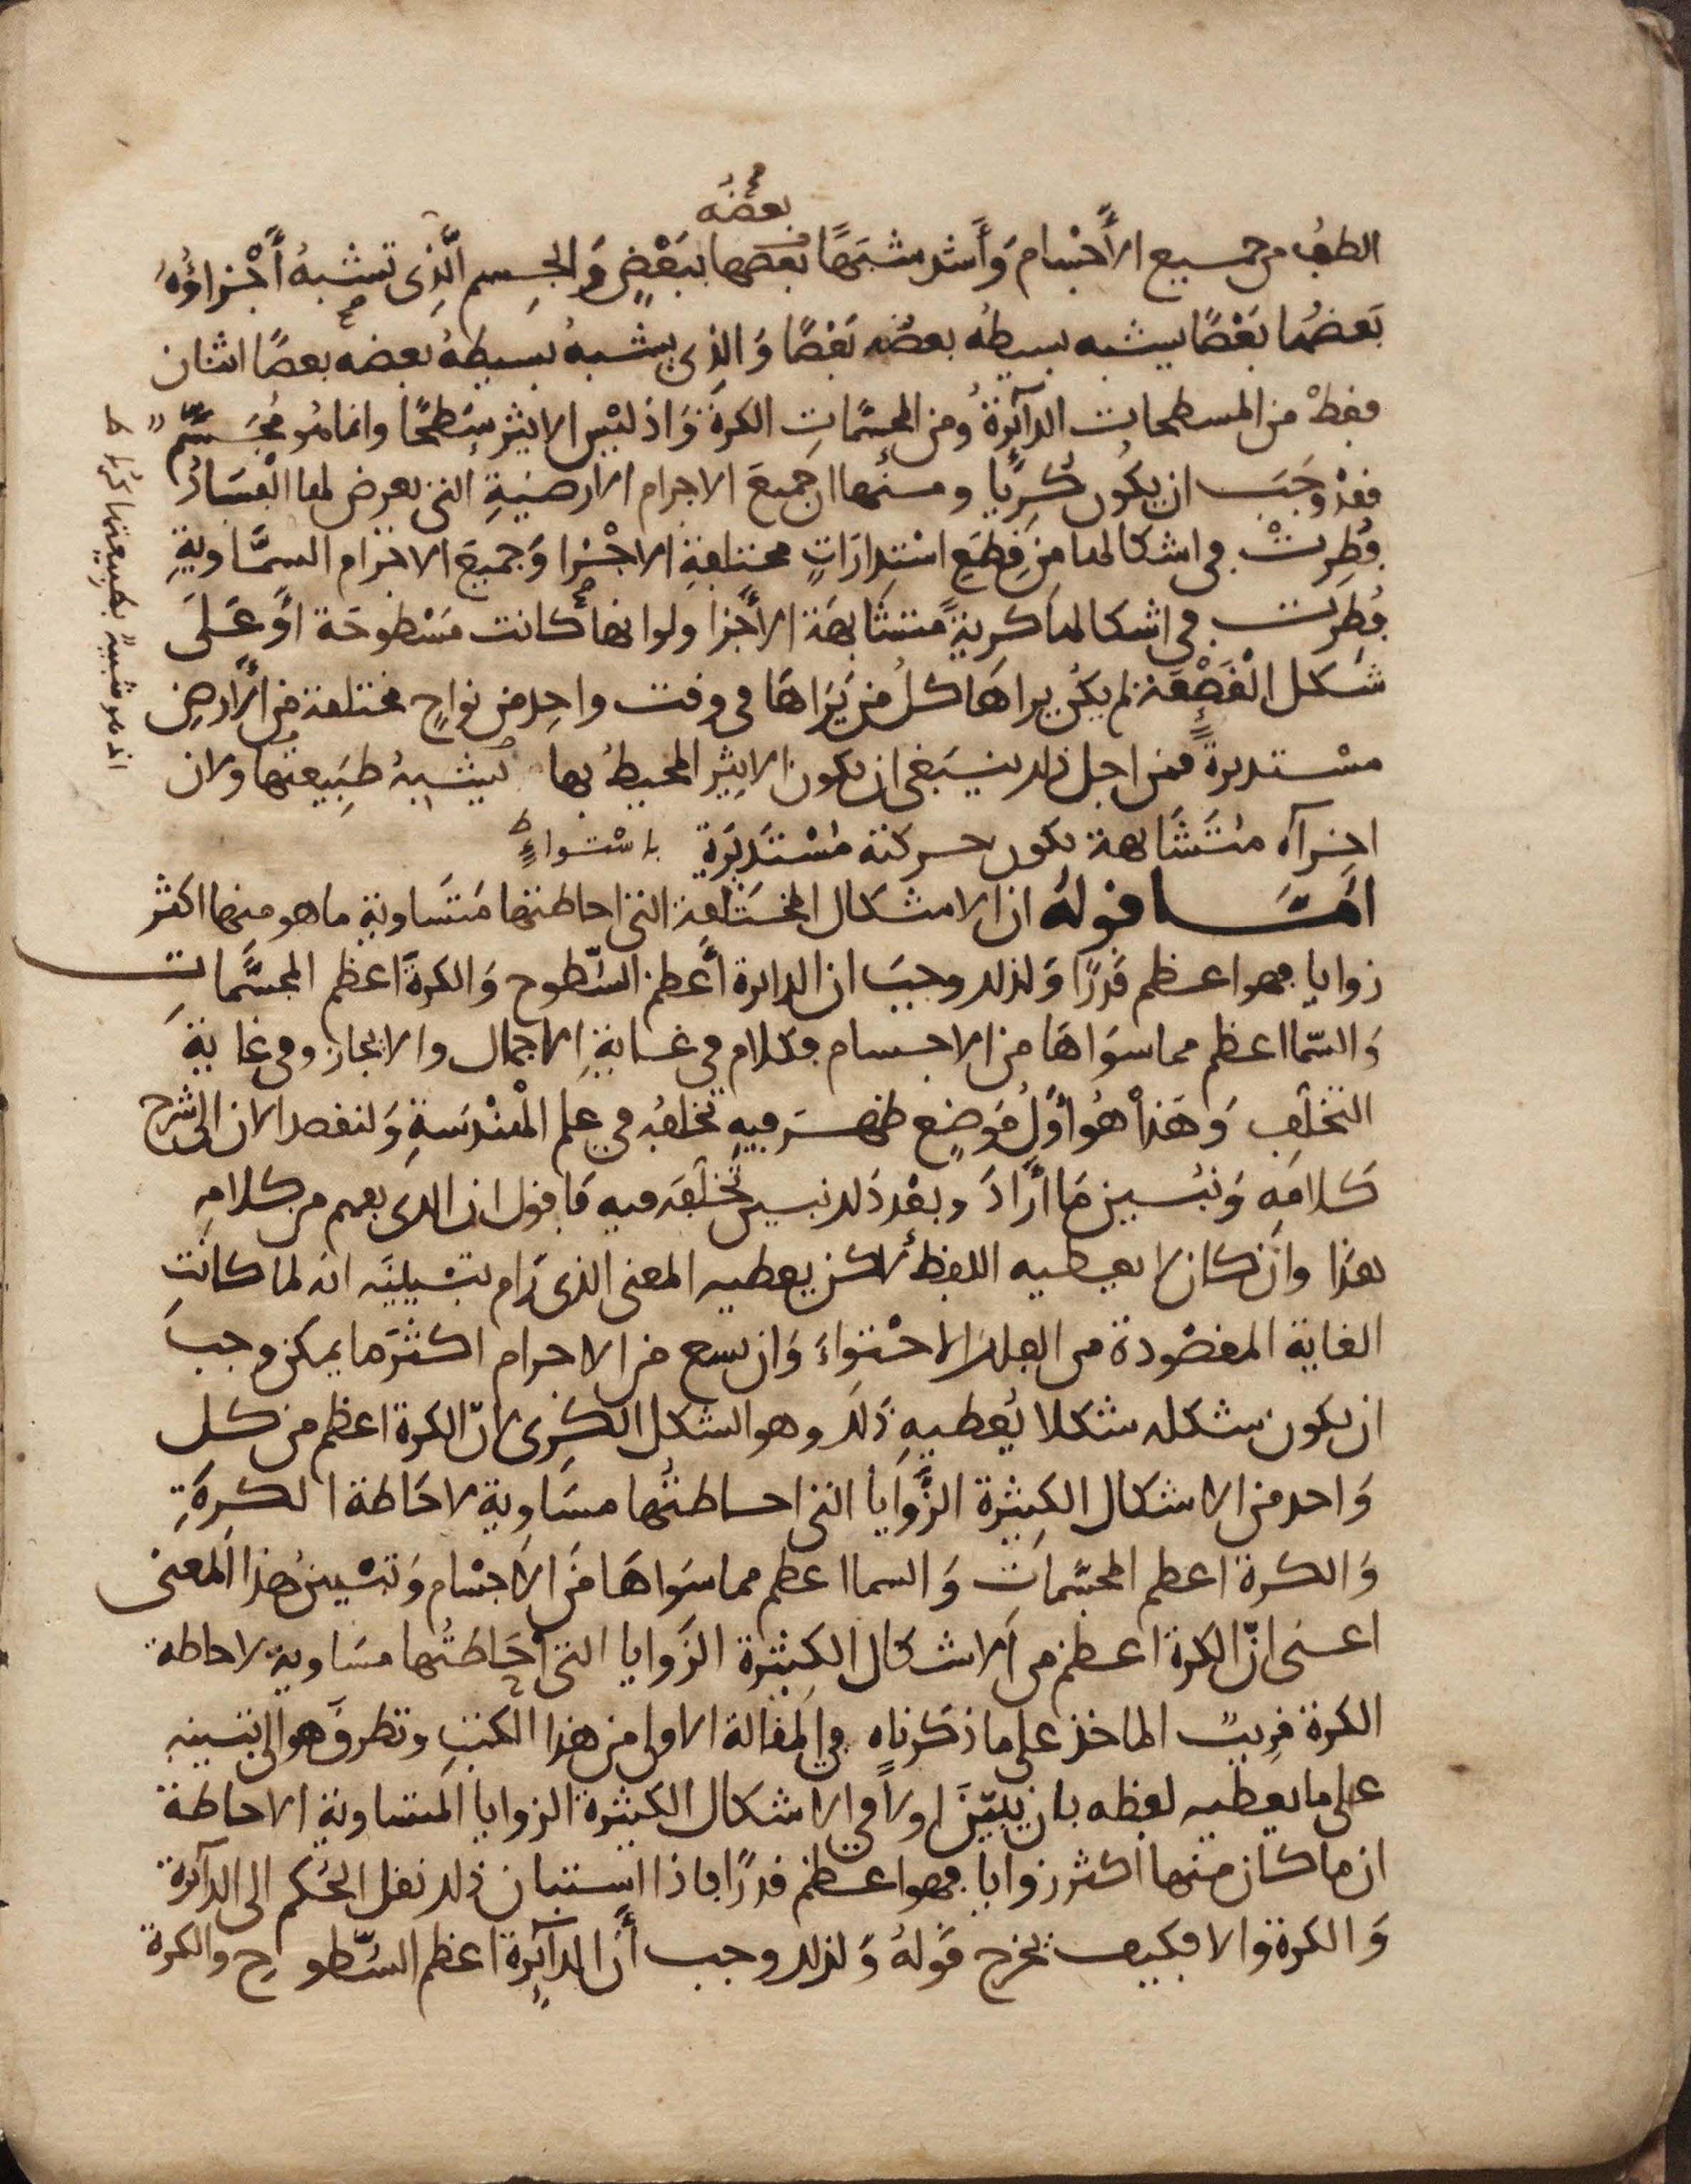 بعضه
الطف من جميع الأجسام وأشد شبهًا بعضها ببعض والجسم الذي تشبه أجزاؤه
بعضها بعضًا يشبه بسيطه بعضه بعضًا والذي يشبه بسيطه بعضه بعضًا اثنان
فقط من المسطحات الدآئرة ومن المجسمات الكرة واذ ليس الايثر سطحًا وانما هو مجسم
فقد وجب ان يكون كريًا ومنها ان جميع الاجرام الارضية التي يعرض لها الفساد
فطرت في اشكالها من قطع استدارات مختلفة الاجزا وجميع الاجرام السماوية
فطرت في اشكالها كرية متشابهة الأجزا ولو انها كانت مسطوحة أو على
شكل القصعة لم يكن يراها كل من يراها في وقت واحد من نواح مختلفة من الأرض
مستديرة فمن اجل ذلك ينبغي ان يكون الايثر المحيط بها يشبه طبيعتها ولان
اجزآه متشابهة يكون حركته مستديرة باستواء
أما قوله ان الاشكال المختلفة التي احاطتها متساوية ما هو منها اكثر
زوايا فهو اعظم قدرًا ولذلك وجب ان الدائرة أعظم السطوح والكرة اعظم المجسمات
والسما اعظم مما سواها من الاجسام فكلام في غاية الاجمال والايجاز وفي غاية
التخلف وهذا هو أول موضع ظهر فيه تخلفه في علم الهندسة ولنقصد الان الى شرح
كلامه ونبين ما أراد وبعد ذلك نبين تخلفه فيه فاقول ان الذي يفهم من كلامه
هذا وان كان لا يعطيه اللفظ لاكن يعطيه المعنى الذي رام تبيينه انه لما كانت
الغاية المقصودة من الفلك الاحتواء وان يسع من الاجرام اكثر ما يمكن وجب
ان يكون شكله شكلا يعطيه ذلك وهو الشكل الكري لان الكرة اعظم من كل
واحد من الاشكال الكثيرة الزوايا التي احاطتها مساوية لاحاطة الكرة
والكرة اعظم المجسمات والسما اعظم مما سواها من الاجسام وتبيين هذا المعنى
اعني ان الكرة اعظم من الاشكال الكثيرة الزوايا التي احاطتها مساوية لاحاطة
الكرة قريب الماخذ على ما ذكرناه في المقالة الاولى من هذا الكتب وتطرق هو الى تبيينه
على ما يعطيه لفظه بان يبين اولا في الاشكال الكثيرة الزوايا المتساوية الاحاطة
ان ما كان منها أكثر زوايا فهو اعظم قدرًا فاذا استبان ذلك نقل الحكم الى الدآئرة
والكرة والا فكيف يخرج قوله ولذلك وجب أن الدآئرة اعظم السطوح والكرة
اذ هو شبيه بطبيعتها كريا